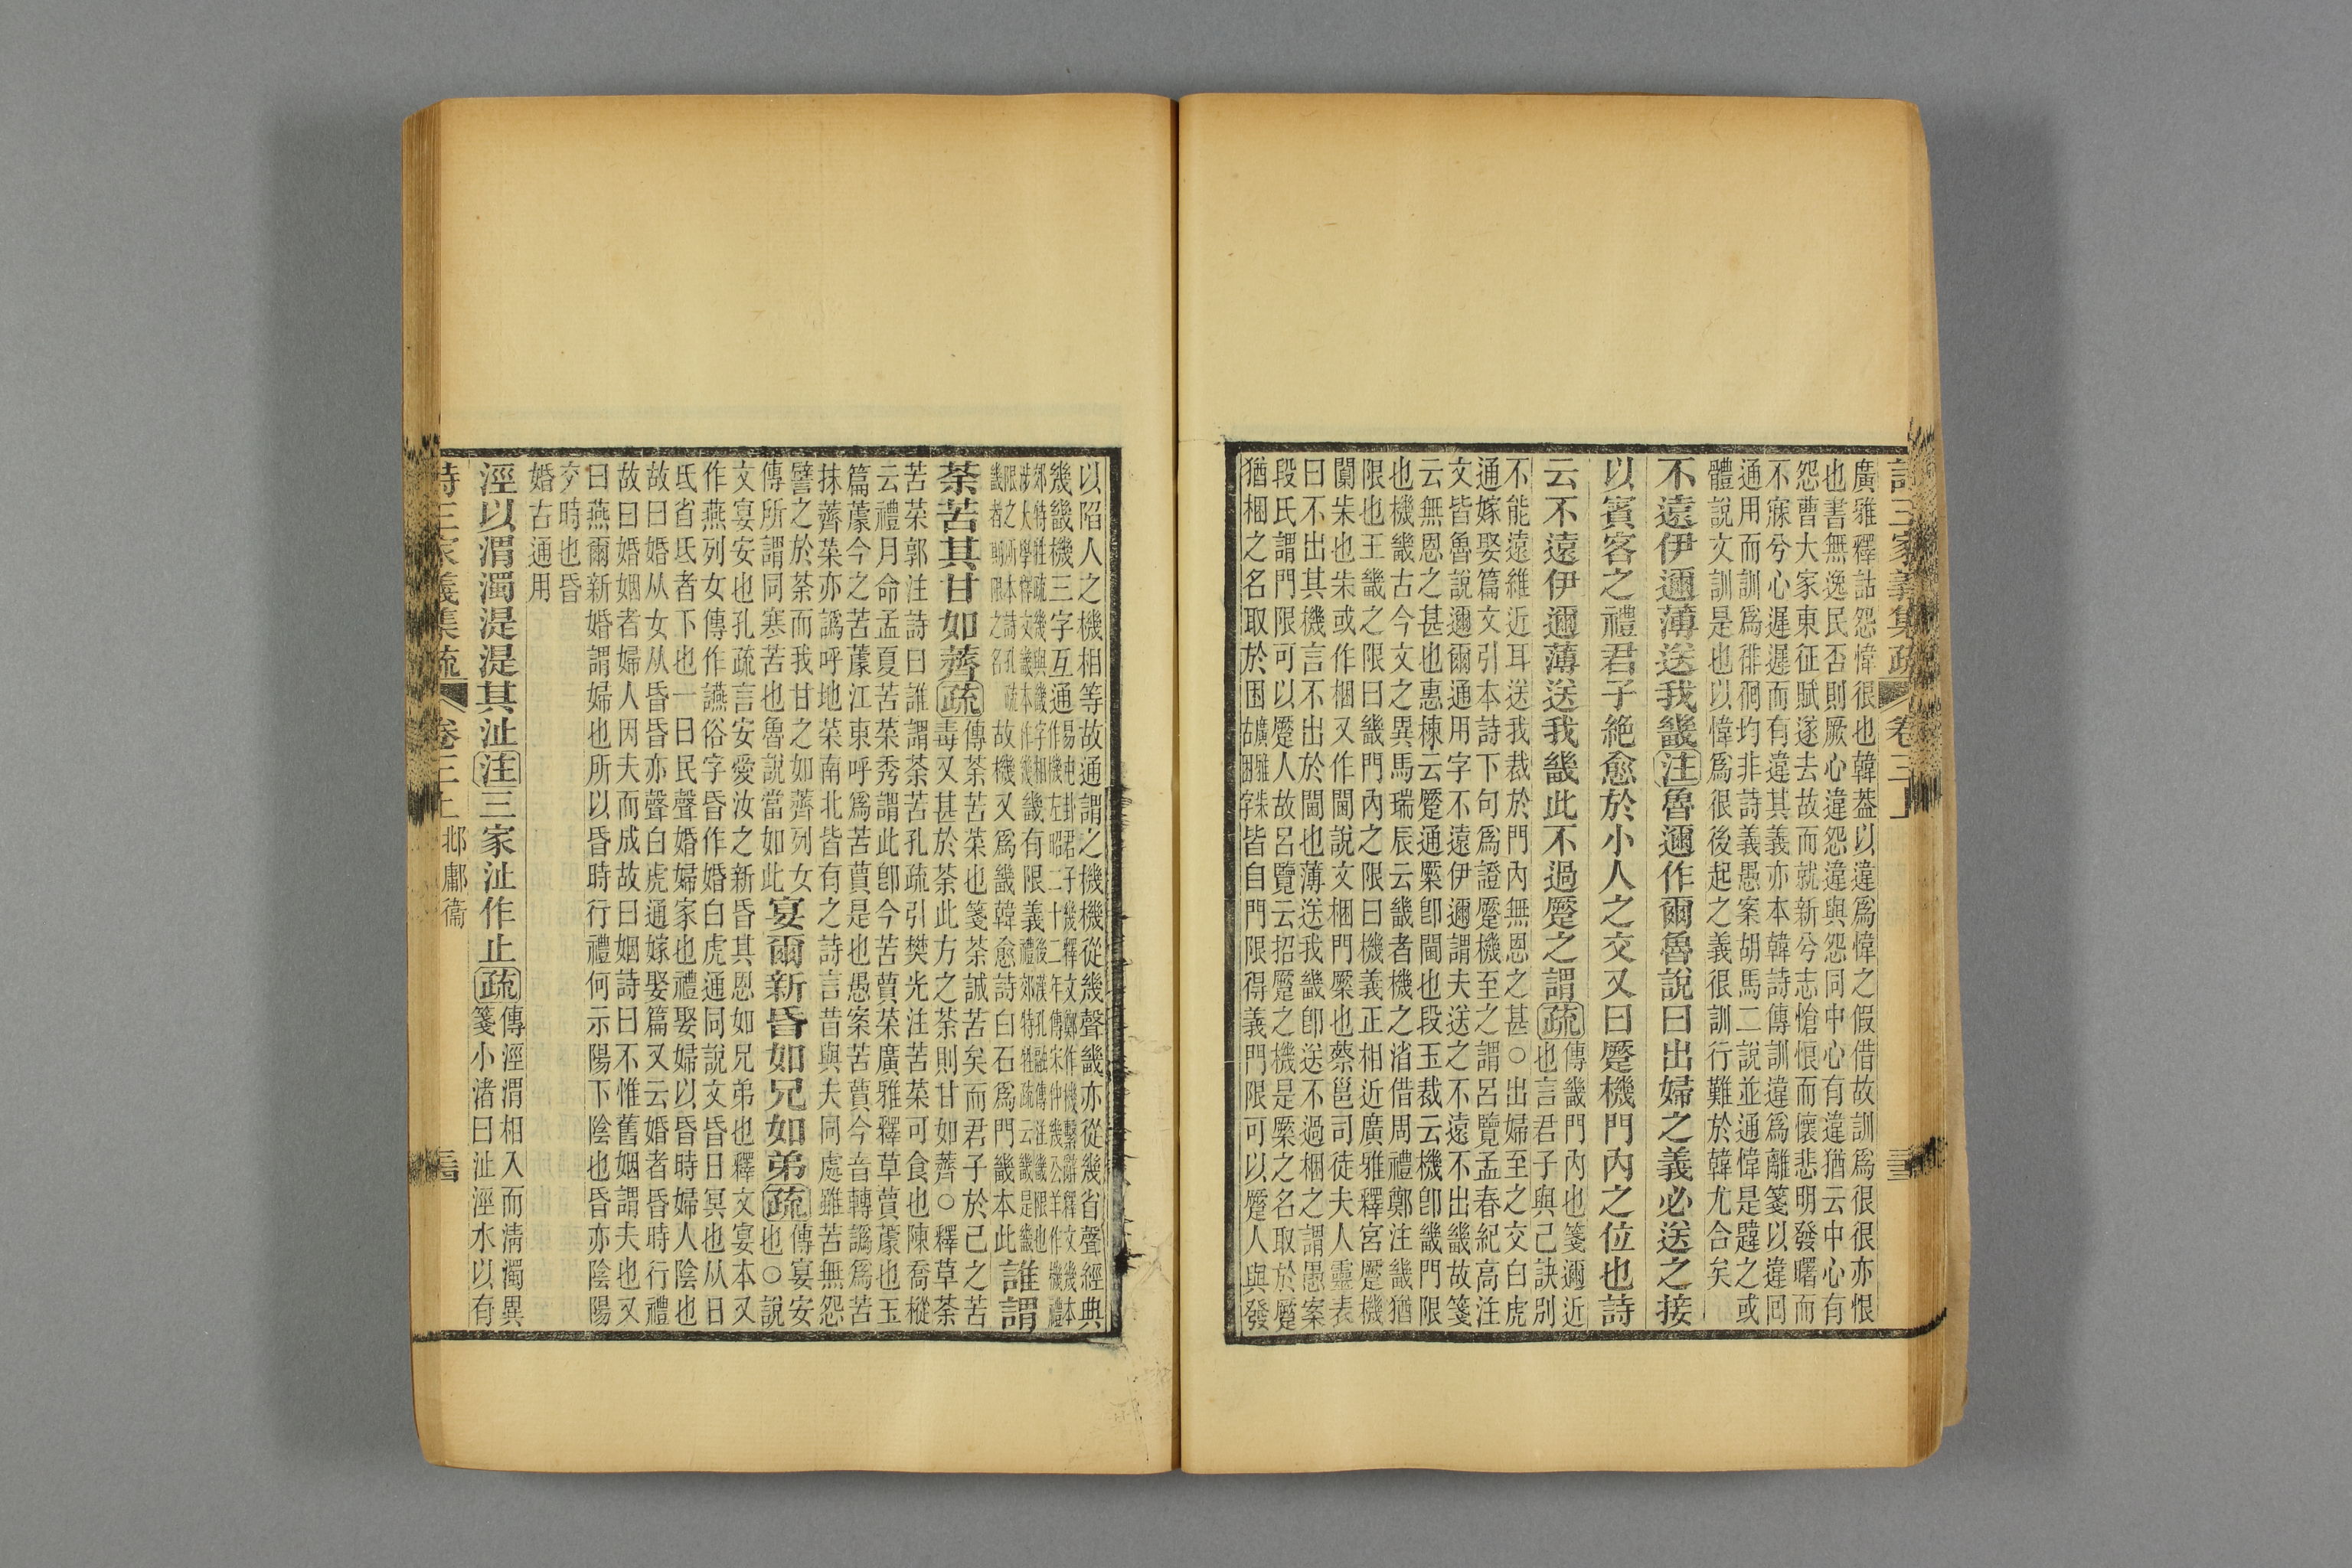 詩三家義集疏 卷三上
廣雅釋詁怨愇很也韓葢以違爲愇之假借故訓爲很很亦恨
也書無逸民否則厥心違怨違與怨同中心有違猶云中心有
怨曹大家東征賦遂去故而就新兮志愴悢而懷悲明發曙而
不寐兮心遲遲而有違其義亦本韓詩傳訓違爲離箋以違囘
通用而訓爲徘徊均非詩義愚案胡馬二說並通愇是韙之或
體說文訓是也以愇爲很後起之義很訓行難於韓尤合矣
不遠伊邇薄送我畿注魯邇作爾魯說曰出婦之義必送之接
以賓客之禮君子絶愈於小人之交又曰蹷機門內之位也詩
云不遠伊邇薄送我畿此不過蹷之謂疏傳畿門內也箋邇近
也言君子與己訣別
不能遠維近耳送我裁於門內無恩之甚○出婦至之交白虎
通嫁娶篇文引本詩下句爲證蹷機至之謂呂覽孟春紀高注
文皆魯說邇爾通用字不遠伊邇謂夫送之不遠不出畿故箋
云無恩之甚也惠棟云蹷通橜卽閫也段玉裁云機卽畿門限
也機畿古今文之異馬瑞辰云畿者機之渻借周禮鄭注畿猶
限也王畿之限曰畿門內之限曰機義正相近廣雅釋宮蹷機
闑朱也朱或作梱又作閫說文梱門橜也蔡邕司徒夫人靈表
曰不出其機言不出於閫也薄送我畿卽送不過梱之謂愚案
段氏謂門限可以蹷人故呂覽云招蹷之機是橜之名取於蹷
猶梱之名取於困廣雅朱古梱字皆自門限得義門限可以蹷人與發
以陷人之機相等故通謂之機機從幾聲畿亦從幾省聲經典
幾畿機三字互通易屯卦君子幾釋文鄭作機繫辭釋文幾本
作機左昭二十二年傳宋仲幾公羊作機禮
郊特牲疏幾與畿字相
涉大學釋文畿本作幾畿有限義後漢孔融傳注畿限也
禮郊特牲疏云畿是畿
限之所本詩孔疏
畿者期限之名故機又爲畿韓愈詩白石爲門畿本此誰謂
荼苦其甘如薺疏傳荼苦菜也箋荼誠苦矣而君子於己之苦
毒又甚於荼此方之荼則甘如薺○釋草荼
苦菜郭注詩曰誰謂荼苦孔疏引樊光注苦菜可食也陳喬樅
云禮月命孟夏苦菜秀謂此卽今苦蕒菜廣雅釋草蕒蘧也玉
篇蘧今之苦蘧江東呼爲苦蕒是也愚案苦蕒今音轉譌爲苦
抹薺菜亦譌呼地菜南北皆有之詩言昔與夫同處雖苦無怨
譬之於荼而我甘之如薺列女
傳所謂同寒苦也魯說當如此宴爾新昏如兄如弟疏傳宴安
也○說
文宴安也孔疏言安愛汝之新昏其恩如兄弟也釋文宴本又
作燕列女傳作讌俗字昏作婚白虎通同說文昏日冥也从日
氐省氐者下也一曰民聲婚婦家也禮娶婦以昏時婦人陰也
故曰婚从女从昏昏亦聲白虎通嫁娶篇又云婚者昏時行禮
故曰婚姻者婦人因夫而成故曰姻詩曰不惟舊姻謂夫也又
曰燕爾新婚謂婦也所以昏時行禮何示陽下陰也昏亦陰陽
交時也昏
婚古通用
涇以渭濁湜湜其沚注三家沚作止疏傳涇渭相入而淸濁異
箋小渚曰沚涇水以有
詩三家義集疏 卷三上 邶鄘衞